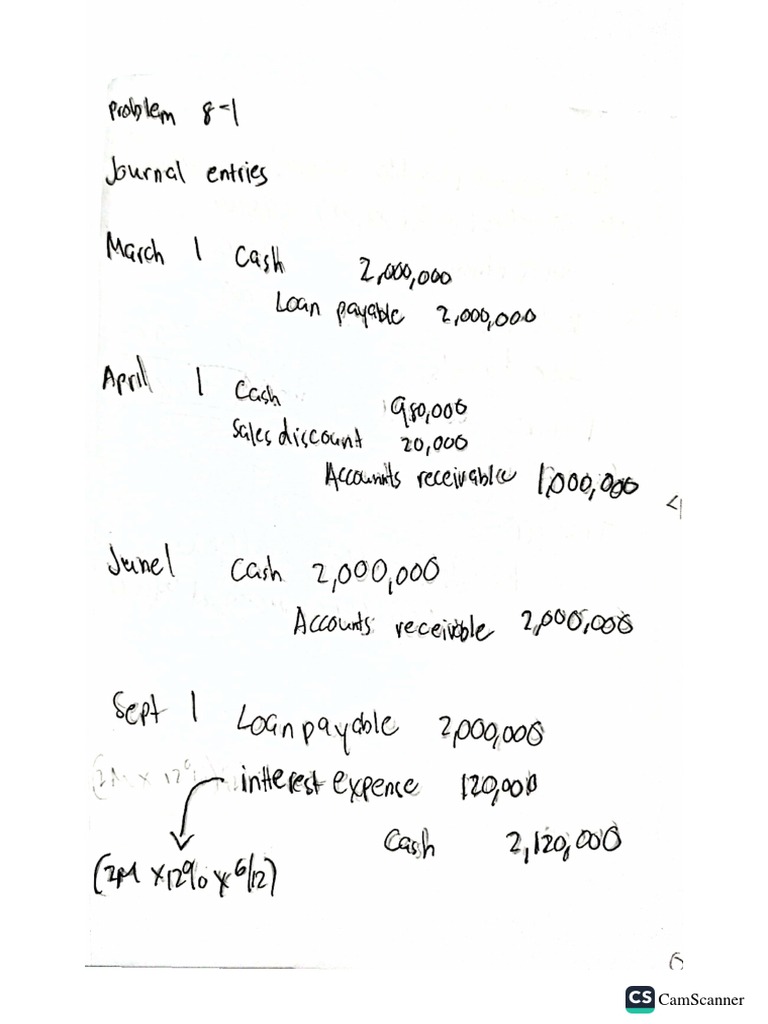 Problem 8-1
Journal entries
March 1 Cash 2,000,000
Loan payable 2,000,000
April 1 Cash 980,000
Sales discount 20,000
Accounts receivable 1,000,000
June 1 Cash 2,000,000
Accounts receivable 2,000,000
Sept 1 Loan payable 2,000,000
(2M x 12% interest expence 120,000
Cash 2,120,000
(2M x 12% x 6/12)
CS CamScanner